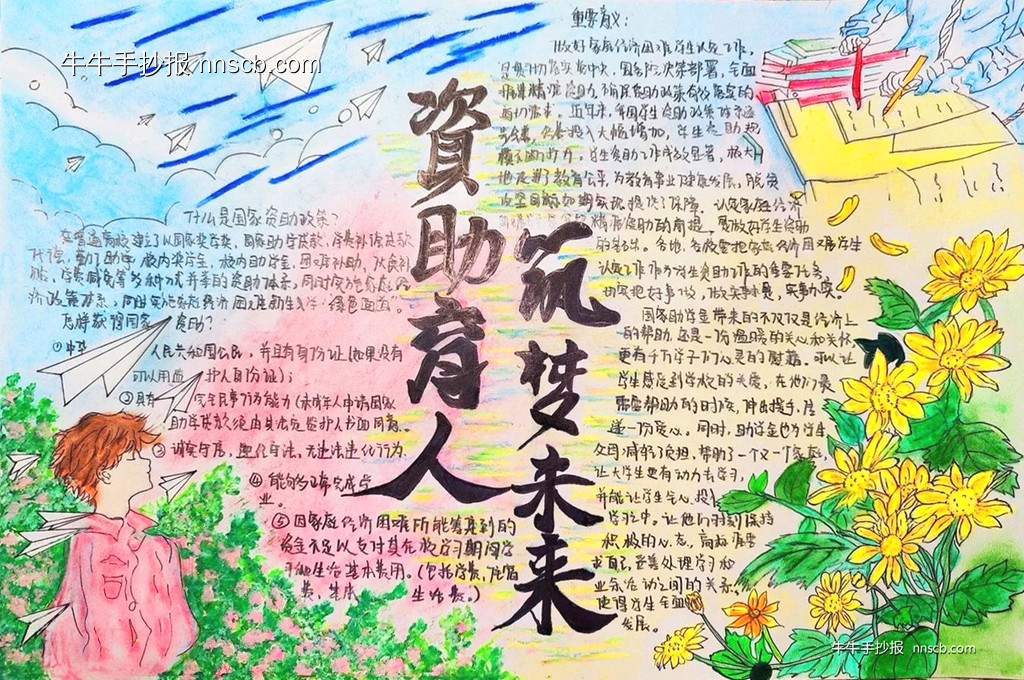 牛牛手抄报 nnscb.com
資助育人
筑梦未来
什么是国家资助政策？
在普通高校建立了以国家奖学金、国家助学贷款、学费补偿贷款
代偿、勤工助学、校内奖学金、校内助学金、困难补助、伙食补
贴、学费减免等多种方式并举的资助体系，同时
济政策体系，同时实施家庭经济困难新生入学"绿色通道"。
怎样获得国家 资助？
①中华 人民共和国公民，并且有身份证(如果没有
可以用监 护人身份证)；
②具有 完全民事行为能力(未成年人申请国家
助学贷款须由其法定监护人书面同意。
③诚实守信，遵纪守法，无违法违纪行为.
④能够正常完成学
业。
⑤因家庭经济困难所能筹集到的
资金不足以支付其在校学习期间学
习和生活基本费用。(包括学费,住宿
费， 生活费。)
重要意义：
做好家庭经济困难学生认定工作,
是贯彻落实党中央、国务院决策部署，全面
推进精准资助，确保资助政策有效落实的
迫切需求。近年来，我国学生资助政策体系逐
步完善，经费投入大幅增加，学生资助规
模不断扩大。学生资助工作成效显著，极大
地促进了教育公平，为教育事业健康发展，脱贫
攻坚目标如期实现提供了保障。认定家庭经济
精准资助的前提，是做好学生资助
的基础。各地、各校要把家庭经济困难学生
认定工作作为学生资助工作的重要任务，
切实把好事做，做实事，实事办实。
国家助学金带来的不仅仅是经济上
的帮助，还是一份温暖的关心和关怀，
更有千万学子们心灵的慰藉。可以让
学生感受到学校的关爱，在他们最
需要帮助的时候，伸出援手，传
递一份爱心。同时，助学金也为学生
父母减轻了负担，帮助了一个又一个家庭，
让大学生更有动力去学习，
并能让学生全心投入
学习中。让他们时刻保持
积极的心态，高标准要
求自己，妥善处理学习和
业余活动之间的关系，
使得学生全面
发展。
牛牛手抄报 nnscb.com